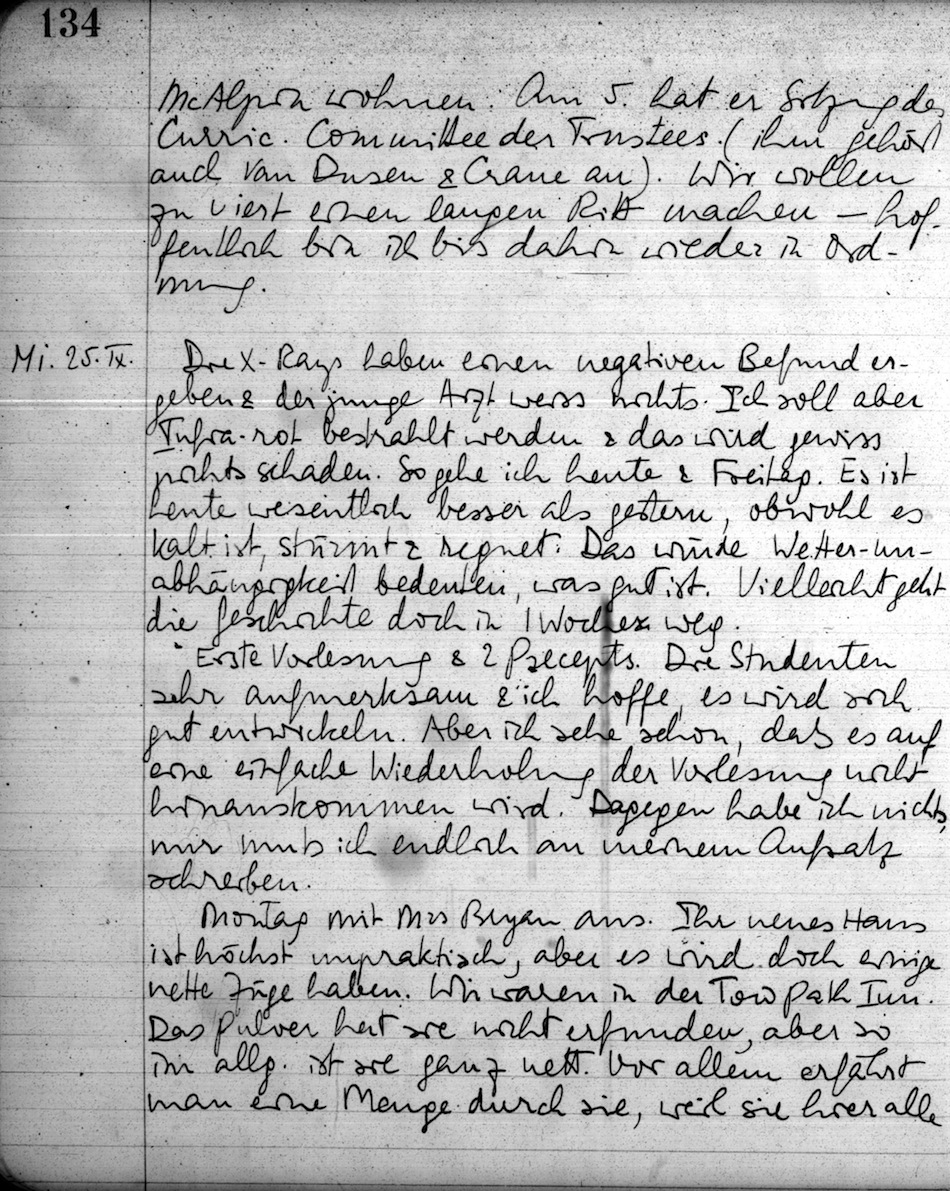 134
McAlpin wohnen. Am 5. hat er Sitzung des
Curric. Committee der Trustees. (ihm gehört
auch Van Dusen & Crane an). Wir wollen
zu viert einen langen Ritt machen – hof-
fentlich bin ich bis dahin wieder in Ord-
nung.
Mi. 25. IX. Die X-Rays haben einen negativen Befund er-
geben & der junge Arzt weiss nichts. Ich soll aber
Infra-rot bestrahlt werden & das wird gewiss
nichts schaden. So gehe ich heute & Freitag. Es ist
heute wesentlich besser als gestern, obwohl es
kalt ist, stürmt & regnet. Das würde Wetter-un-
abhängigkeit bedeuten, was gut ist. Vielleicht geht
die Geschichte doch in 1 Woche weg.
Erste Vorlesung & 2 Precepts. Die Studenten
sehr aufmerksam & ich hoffe, es wird sich
gut entwickeln. Aber ich sehe schon, daß es auf
eine einfache Wiederholung der Vorlesung nicht
hinauskommen wird. Dagegen habe ich nichts,
nur muß ich endlich an meinem Aufsatz
schreiben.
Montag mit Mrs Bryan aus. Ihr neues Haus
ist höchst unpraktisch, aber es wird doch einige
nette Züge haben. Wir waren in der Tow Path Inn.
Das Pulver hat sie nicht erfunden, aber so
im allg. ist sie ganz nett. Vor allem erfährt
man eine Menge durch sie, weil sie hier alle